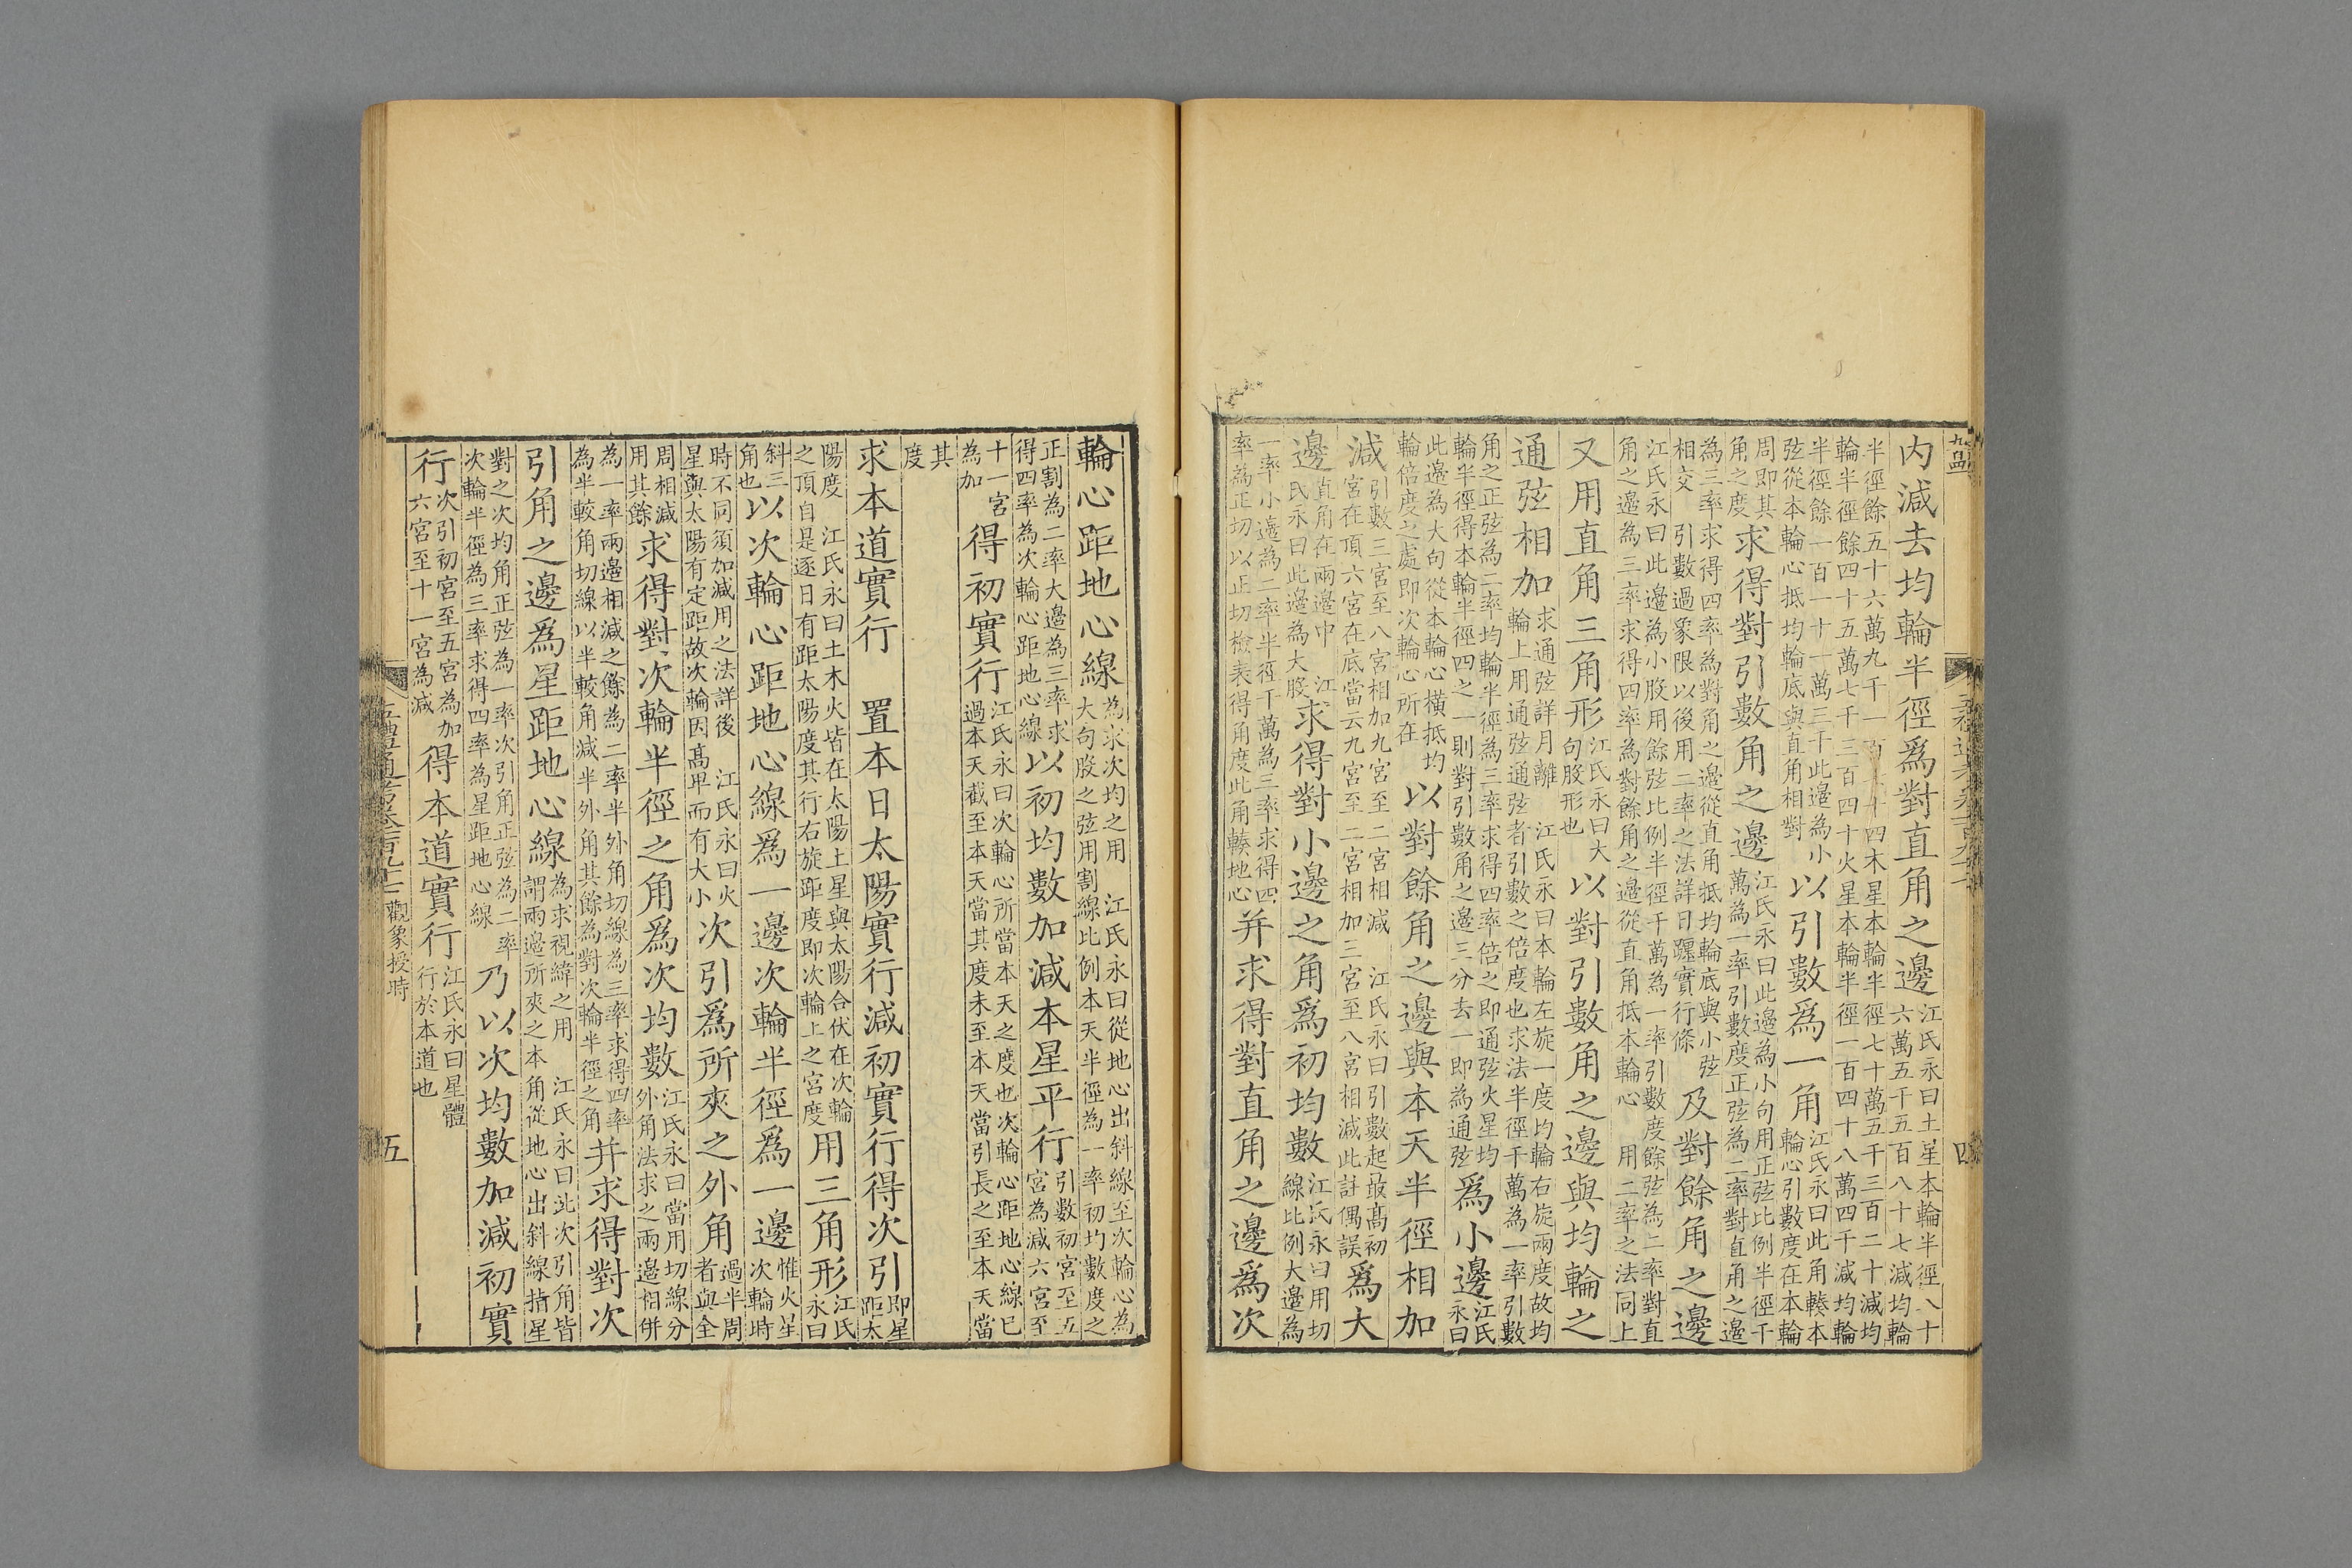 內減去均輪半徑爲對直角之邊江氏永曰土星本輪半徑八十六萬五千五百八十七減均輪
半徑餘五十六萬九千一四木星本輪半徑七十萬五千三百二十減均輪半徑餘四十五萬七千三百四十火星本輪半徑一百四十八萬四千減均輪
半徑餘一百一十一萬三千此邊為小弦從本輪心抵均輪底與直角相對以引數爲一角江氏永曰此角輳本輪心引數度在本輪
周即其角之度求得對引數角之邊江氏永曰此邊為小句用正弦比例半徑千萬為一率引數度正弦為二率對直角之邊
為三率求得四率為對角之邊從直角抵均輪底與小弦相交 引數過象限以後用二率之法詳日躔實行條及對餘角之邊
江氏永曰此邊為小股用餘弦比例半徑千萬為一率引數度餘弦為二率對直角之邊為三率求得四率為對餘角之邊從直角抵本輪心 用二率之法同上
又用直角三角形江氏永曰大句股形也以對引數角之邊與均輪之
通弦相加求通弦詳月離 江氏永曰本輪左旋一度均輪右旋兩度故均輪上用通弦通弦者引數之倍度也求法半徑千萬為一率引數
角之正弦為二率均輪半徑為三率求得四率倍之即通弦火星均輪半徑得本輪半徑四之一則對引數角之邊三分去一即為通弦爲小邊江氏永曰
此邊為大句從本輪心橫抵均輪倍度之處即次輪心所在以對餘角之邊與本天半徑相加
減引數三宮至八宮相加九宮至二宮相減 江氏永曰引數起最高初宮在頂六宮在底當云九宮至二宮相加三宮至八宮相減此註偶誤爲大
邊直角在兩邊中 江氏永曰此邊為大股求得對小邊之角爲初均數江氏永曰用切線比例大邊為
一率小邊為二率半徑千萬為三率求得四率為正切以正切檢表得角度此角輳地心并求得對直角之邊爲次
輪心距地心線為求次均之用 江氏永曰從地心出斜線至次輪心為大句股之弦用割線比例本天半徑為一率初均數度之
正割為二率大邊為三率求得四率為次輪心距地心線以初均數加減本星平行引數初宮至五宮為減六宮至
十一宮為加得初實行江氏永曰次輪心所當本天之度也次輪心距地心線已過本天截至本天當其度未至本天當引長之至本天當
其度
求本道實行 置本日太陽實行減初實行得次引即星距太
陽度 江氏永曰土木火皆在太陽上星與太陽合伏在次輪之頂自是逐日有距太陽度其行右旋距度即次輪上之宮度用三角形江氏永曰
斜三角也以次輪心距地心線爲一邊次輪半徑爲一邊惟火星次輪時
時不同須加減用之法詳後 江氏永曰火星與太陽有定距故次輪因高卑而有大小次引爲所夾之外角過半周者與全
周相減用其餘求得對次輪半徑之角爲次均數江氏永曰當用切線分外角法求之兩邊相併
為一率兩邊相減之餘為二率半外角切線為三率求得四率為半較角切線以半較角減半外角其餘為對次輪半徑之角并求得對次
引角之邊爲星距地心線為求視緯之用 江氏永曰此次引角皆謂兩邊所夾之本角從地心出斜線指星
對之次均角正弦為一率次引角正弦為二率次輪半徑為三率求得四率為星距地心線乃以次均數加減初實
行次引初宮至五宮為加六宮至十一宮為減得本道實行江氏永曰星體行於本道也
觀象授時
五